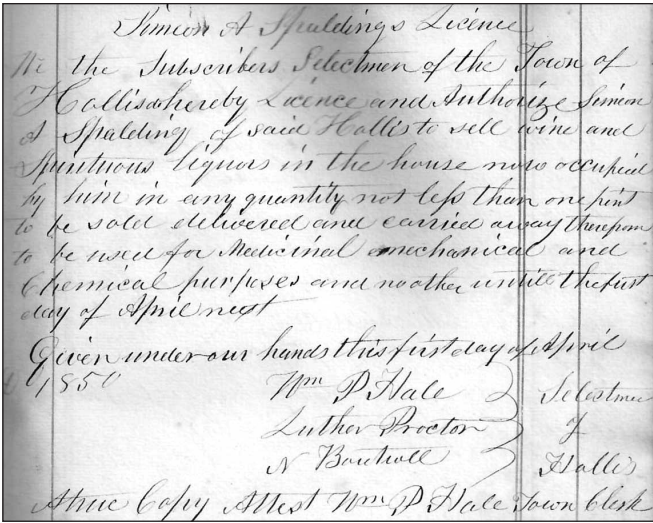 Simeon A Spaldings Licence
We the Subscribers Selectmen of the Town of
Hollis hereby Licence and Authorize Simeon
A Spalding of said Hollis to sell wine and
Spirituous liquors in the house now occupied
by him in any quantity not less than one pint
to be sold delivered and carried away therefrom
to be used for Medicinal mechanical and
Chemical purposes and no other untill the first
day of April next
Given under our hands this first day of April
1850
Wm P Hale Selectmen
Luther Proctor of
N Boutwell Hollis
A true Copy Attest Wm P Hale Town Clerk